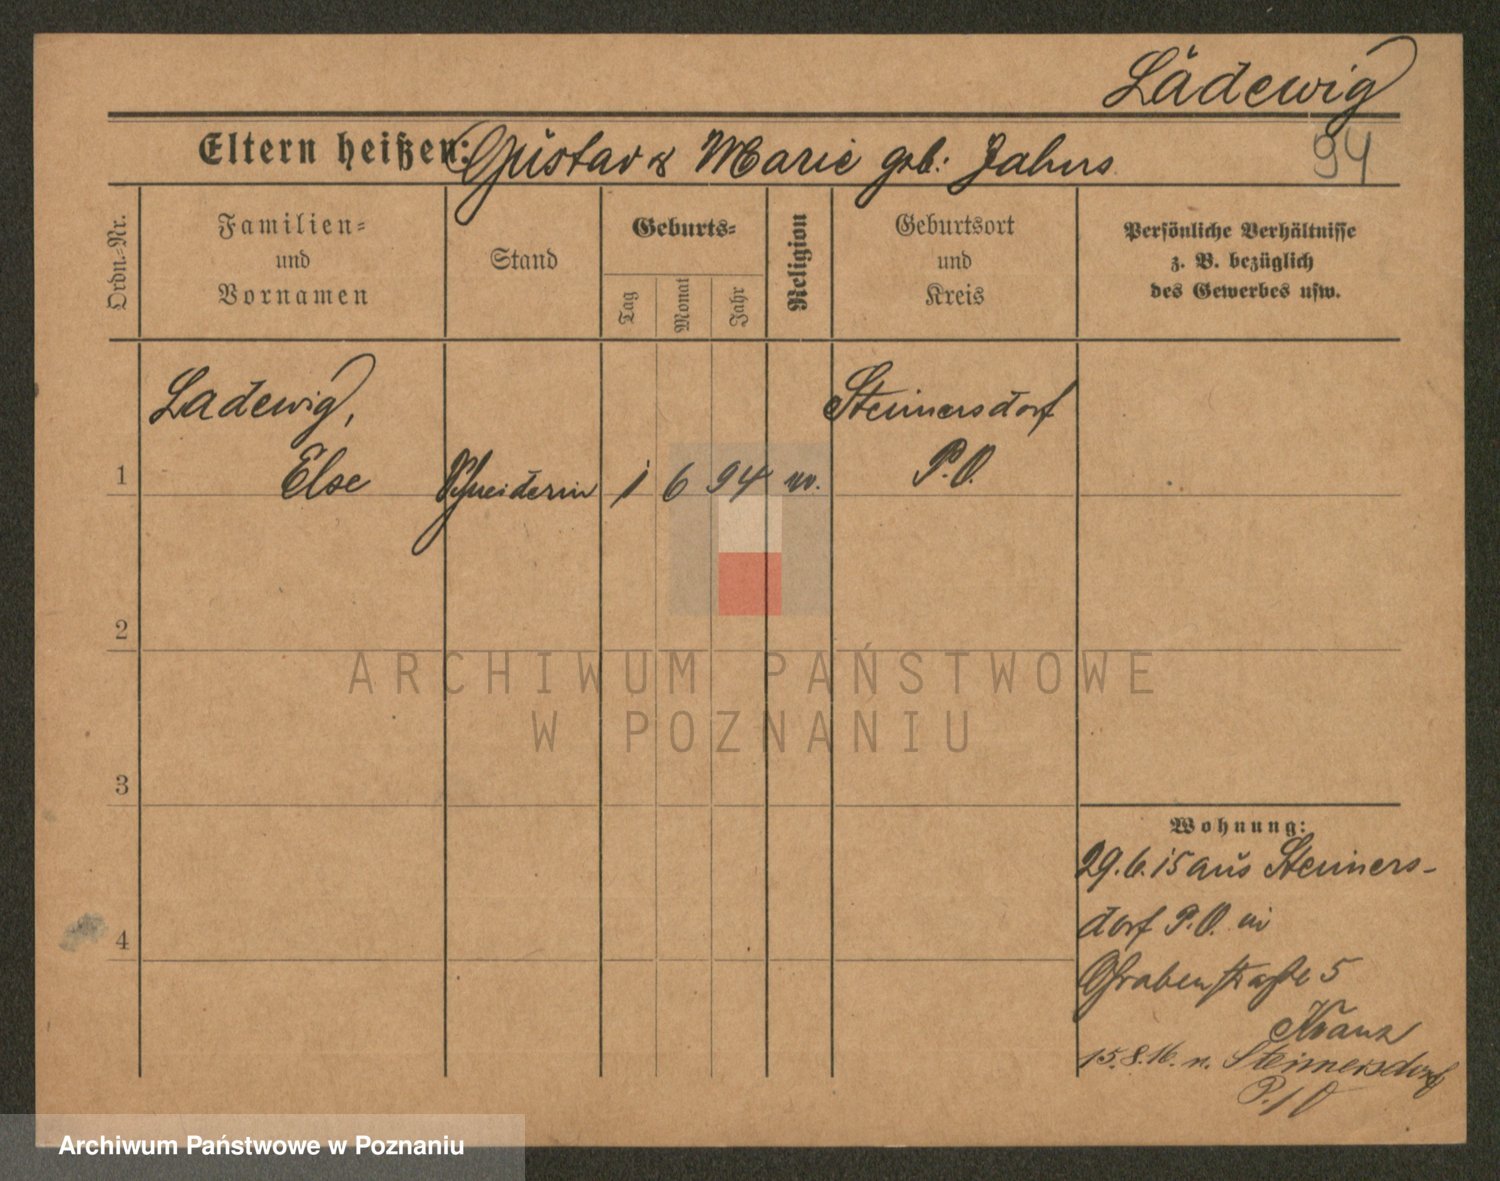 Lädewig
Eltern heißen: Gustav & Marie geb: Jahns
94
Ordn.=Nr.
Familien=
und
Vornamen
Stand
Geburts=
Tag
Monat
Jahr
Religion
Geburtsort
und
Kreis
Persönliche Verhältnisse
z. B. bezüglich
des Gewerbes usw.
Ladewig,
Steimersdorf
1 Else Schneiderin 1 6 94 P.O.
2
ARCHIWUM PAŃSTWOWE
W POZNANIU
3
Wohnung:
29.6.15 aus Steimers-
dorf P.O. in
4
Grabenstraße 5
Kranz
15.8.16. n. Steimersdorf
P./O
Archiwum Państwowe w Poznaniu